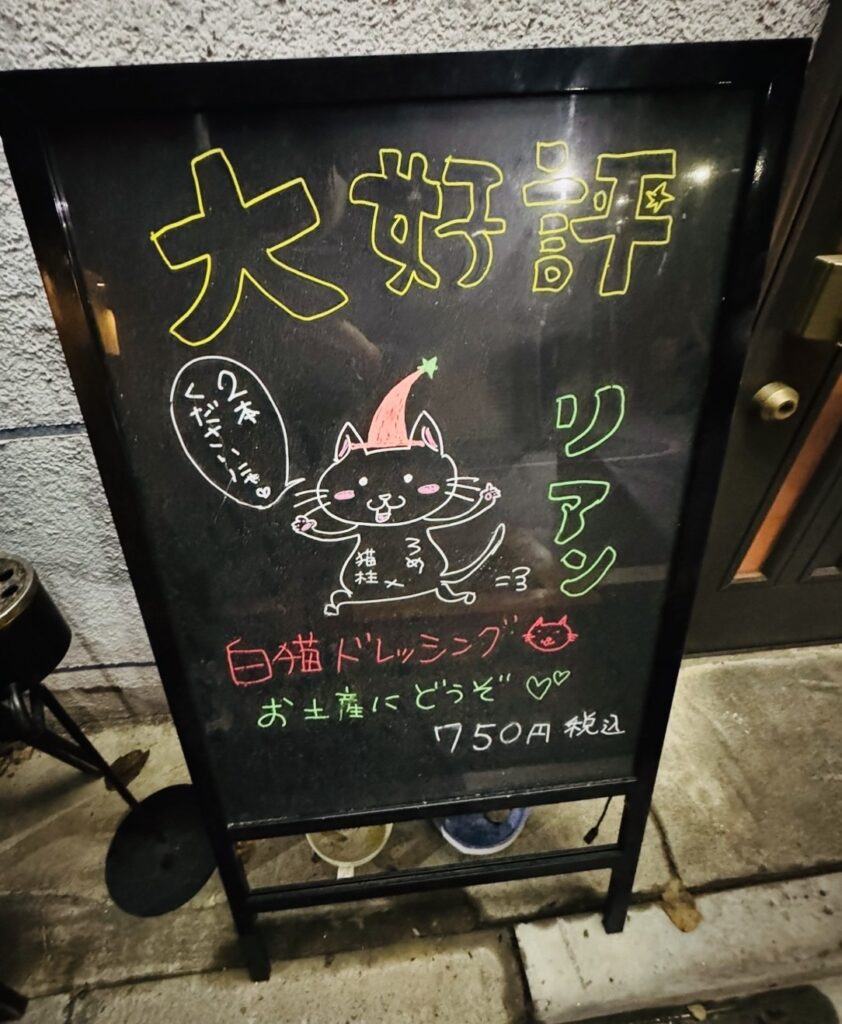 大好評
2本
くださいにゃ♡
リアン
白猫ドレッシング
お土産にどうぞ♡♡
750円 税込